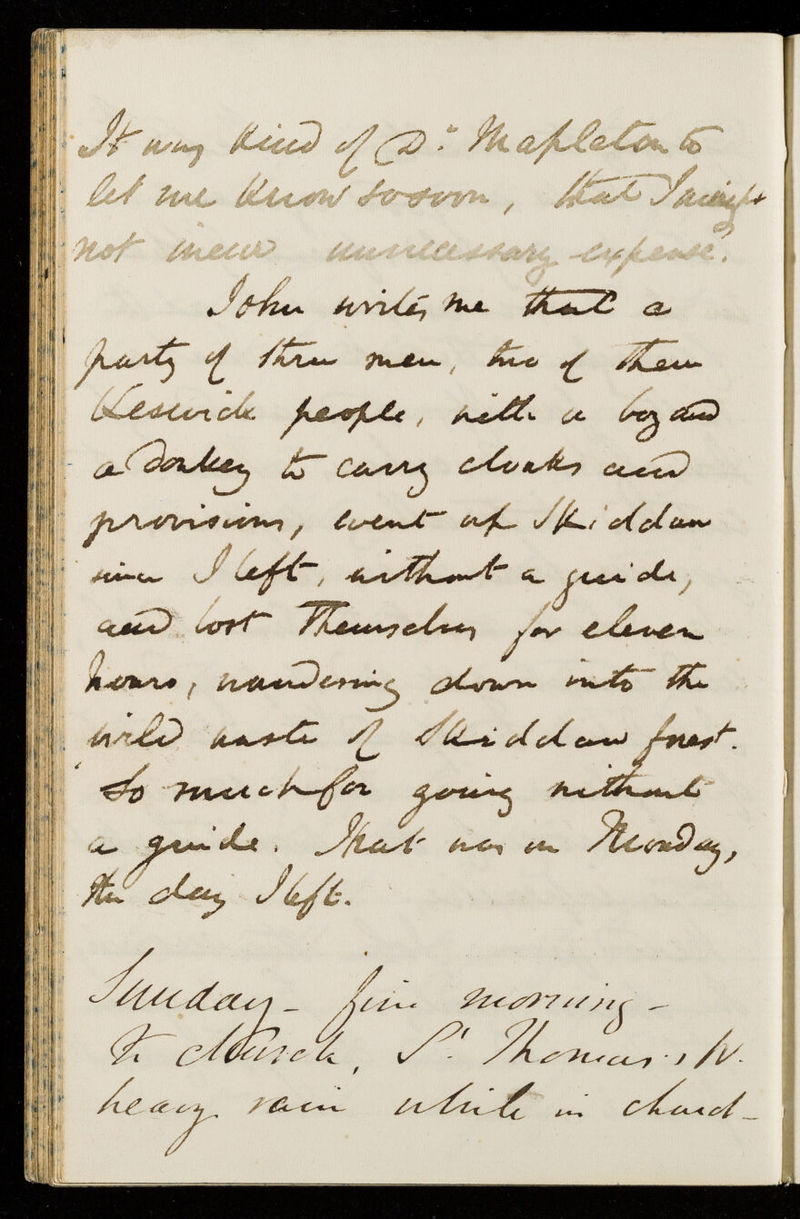 It was kind of Dr. Mapleton to
let me know so soon, that I might
not incur unnecessary expense.
John writes me that a
party of three men, two of them
Keswick people, with a boy and
a donkey to carry cloaks and
provisions, went up Skiddaw
since I left, without a guide,
and lost themselves for eleven
hours, wandering down into the
wild waste of Skiddaw forest.
So much for going without
a guide. That was on Monday,
the day I left.
Sunday - fine morning -
to church, St. Thomas's, W.
heavy rain while in church -